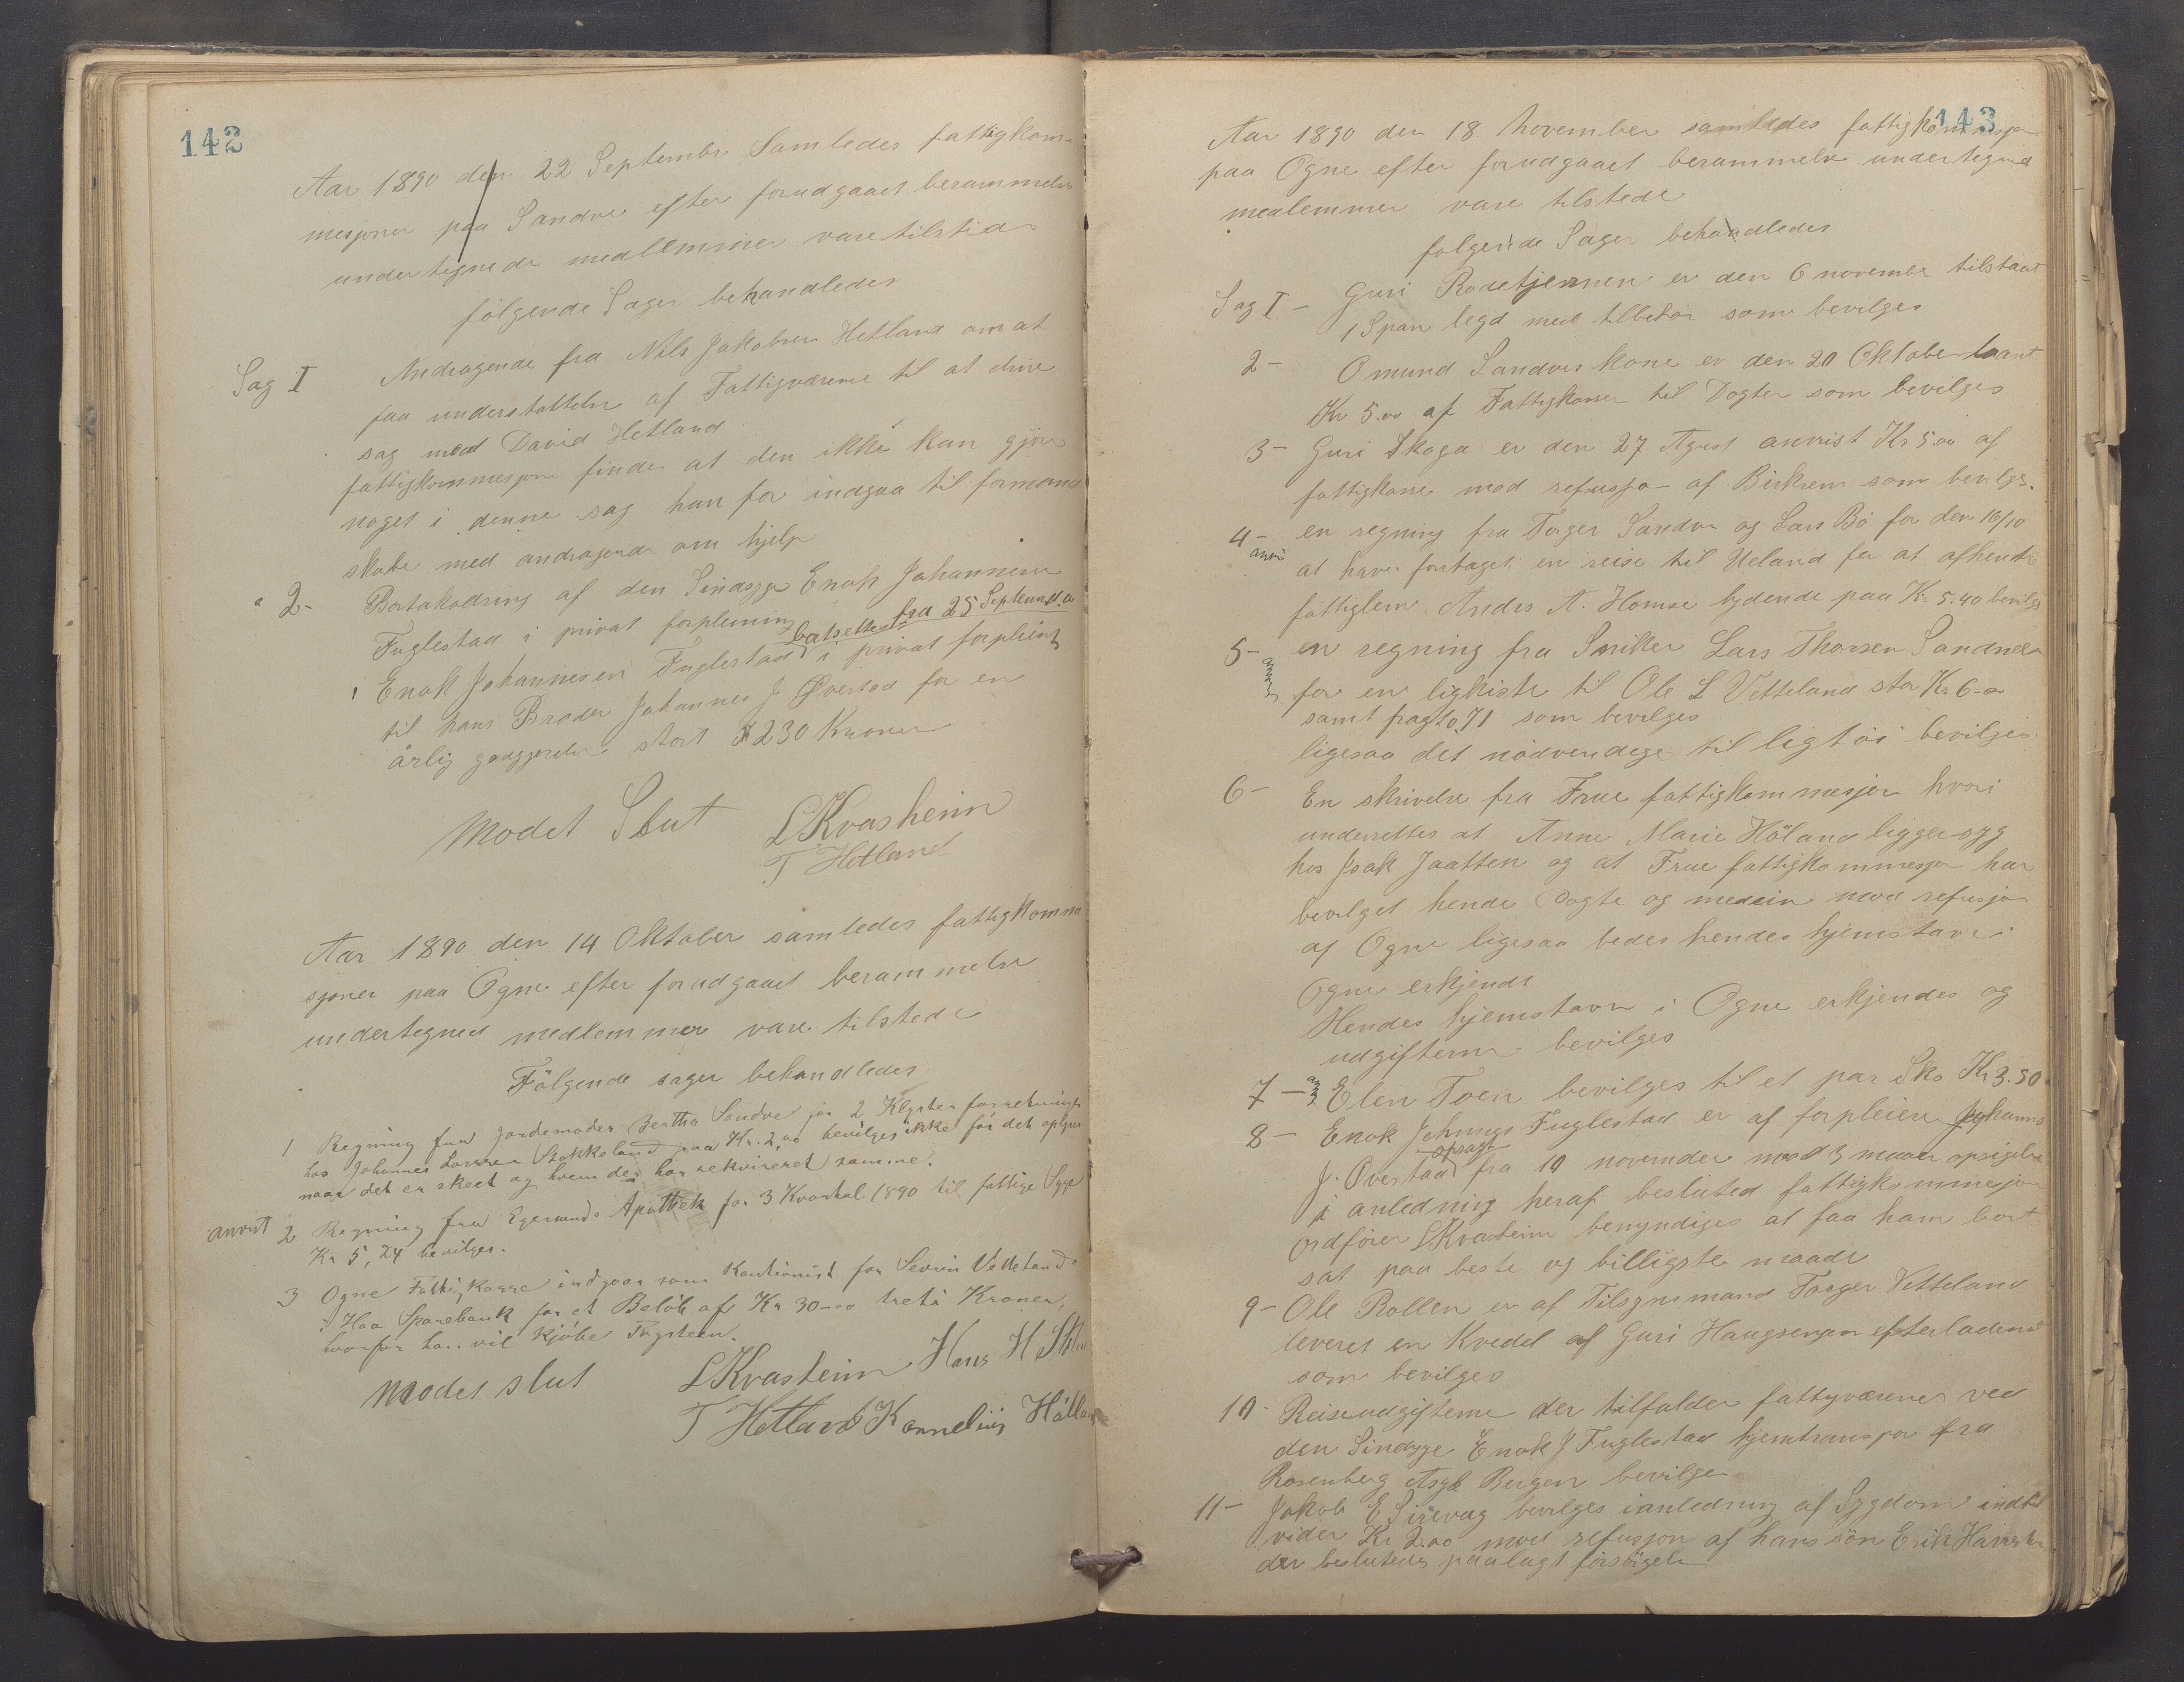 142
Aar 1890 den 22 Septembr Samledes fattigkom-
mesjonen paa Sandve efter forudgaaet berammelse
undertegnede medlemmer vare tilstede
følgende Sager behandledes
Sag I Andragende fra Nils Jakobsen Hetland om at
faa understøttelse af Fattigvæsenet til at drive
sag med David Hetland
fattigkommesjonen finder at den ikke kan gjøre
noget i denne sag han for indgaa til formand
skabe med andragende om hjelp
2- Bortakodring af den Sindsyge Enok Johannesen
Fuglestad i privat forpleining
bortsettes fra 25 Septembr d.a
Enok Johannesen Fuglestad i privat forpleining
til hans Broder Johannes J. Øvestad for en
årlig godgjørelse stort 230 Kroner
Modet Slut L Kvasheim
T Hetland
Aar 1890 den 14 Oktober samledes fattigkomme
sjonen paa Ogne efter forudgaaet berammelse
undertegned medlemmer vare tilstede
Følgende sager behandledes
1 Regning fra Jordemoder Bertha Sandve for 2 Klyster forretninger
hos Johannes Larsen Stokkeland paa Kr. 2,00 bevilges ikke før det oplyses
naar det er skeet og hvem der har rekvireret samme.
anvist 2 Regning fra Egersunds Apothek for 3 Kvartal 1890 til fattige Syge
Kr 5,24 bevilges.
3 Ogne Fattigkasse indgaar som Kautionist for Sevrin Vetteland
i Haa Sparebank for et Beløb af Kr 30-00 treti Kroner,
hvorfor han vil kjøbe Tagsteen.
Modet slut L Kvasheim Hans H
T Hetland Kornelius Hålland
143
Aar 1890 den 18 November samledes fattigkommesjon
paa Ogne efter forudgaaet berammelse undertegned
medlemmer vare tilstede
følgende Sager behandledes
Sag I - Guri Rodetjernen er den 6 novembr tilstaat
1 Span legd med tilbehør som bevilges
2- Omund Sandves kone er den 20 Oktober laant
Kr 5.00 af Fattigkassen til Dogter som bevilges
3- Guri Skoga er den 27 Agust anvist Kr 5.00 af
fattigkasse mod refusjo- af Birkrem som bevilges.
4- en regning fra Torger Sandve og Lars Bø for den 16/10
anvi at have fortaget en reise til Ueland for at afhente
fattiglem Andrs A. Homse lydende paa Kr. 5.40 bevilges
5- en regning fra Sniker Lars Thorsen Sandnes
for en ligkiste til Ole L Vetteland stor Kr 6-00
samt fragt 0.71 som bevilges
ligesaa det nødvendige til ligtøi bevilges
6- En skrivelse fra Frue fattigkommesjon hvori
underrettes at Anne Marie Höland ligger syg
hos Isak Jaatten og at Frue fattigkommesjon har
bevilget hende Dogte og medsin mod refusjon
af Ogne ligesaa bedes hendes hjemstavn i
Ogne erkjendt
Hendes hjemstavn i Ogne erkjendes og
udgifterne bevilges
7- Elen Toen bevilges til et par Sko Kr 3.50
8- Enok Johnngs Fuglestad er af forpleiere Johanns
J. Øvestad opsagt fra 19 novemder med 3 maaer opsigelse
i anledning heraf besluted fattigkommesjon
ordfører L Kvasheim bemyndiges at faa ham bort
sat paa beste og billigste maade
9- Ole Rollen er af Tilsynsmand Torger Vetteland
leveret en Kvedel af Guri Haugsengen efterladend
som bevilges
10- Reiseudgifterne der tilfalder fattigvæsenet ved
den Sindsyge Enok J Fuglestad hjemtranspor fra
Rosenberg Asyl Bergen bevilges
11- Jakob E Sirevag bevilges i anledning af Sygdom indtil
vider Kr 2.00 mod refusjon af hans søn Erik
der besluttedes paalagt forsørgelse